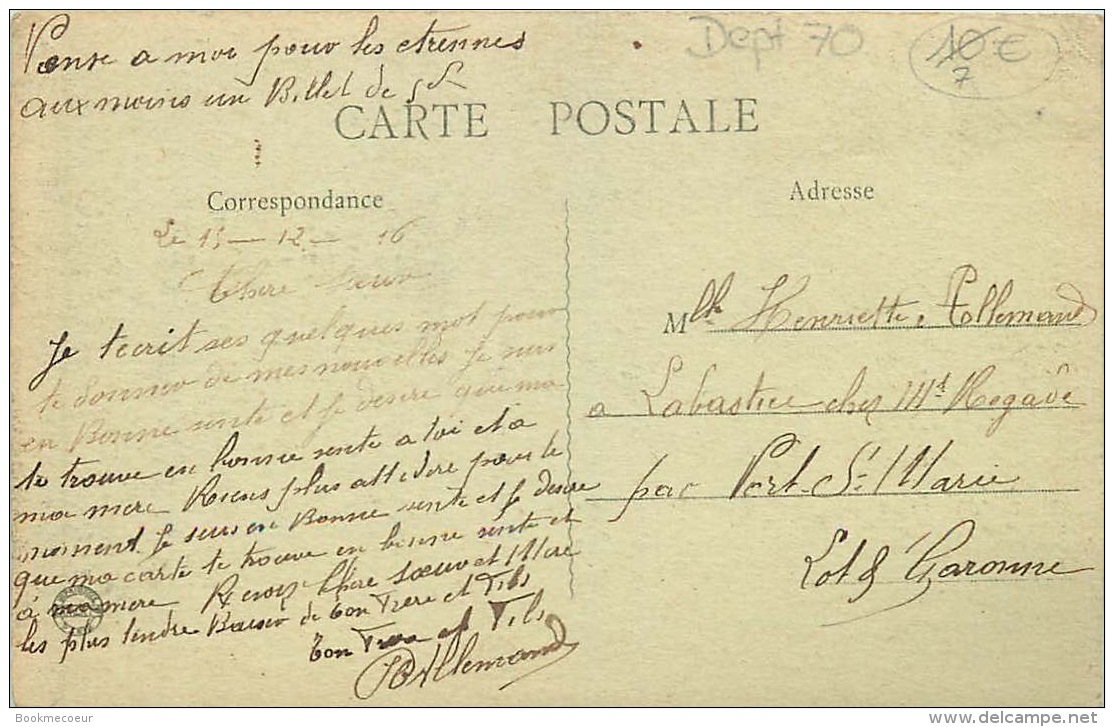 Pense a moi pour les etrennes
aux moins un Billet de 5f
Dept 70
10 €
7
CARTE POSTALE
Correspondance
Adresse
Le 15 - 12 - 16
Chere Sœur
Je tecrit ses quelques mot pour
te donner de mes nouvelles Je suis
en Bonne sente et Je desire que ma
te trouve en bonne sente a toi et a
ma mere Riens plus a te dire pour le
moment Je suis en Bonne sente et Je desire
que ma carte te trouve en bonne sente et
à ma mere Recois Chere sœur et Mere
les plus tendre Baiser de ton Frere et Fils
ton Frere et Fils
Allemand
Mlle Henriette Allemand
a Labastie chez Md Regade
par Port-Ste Marie
Lot & Garonne
Bookmecoeur
www.delcampe.net